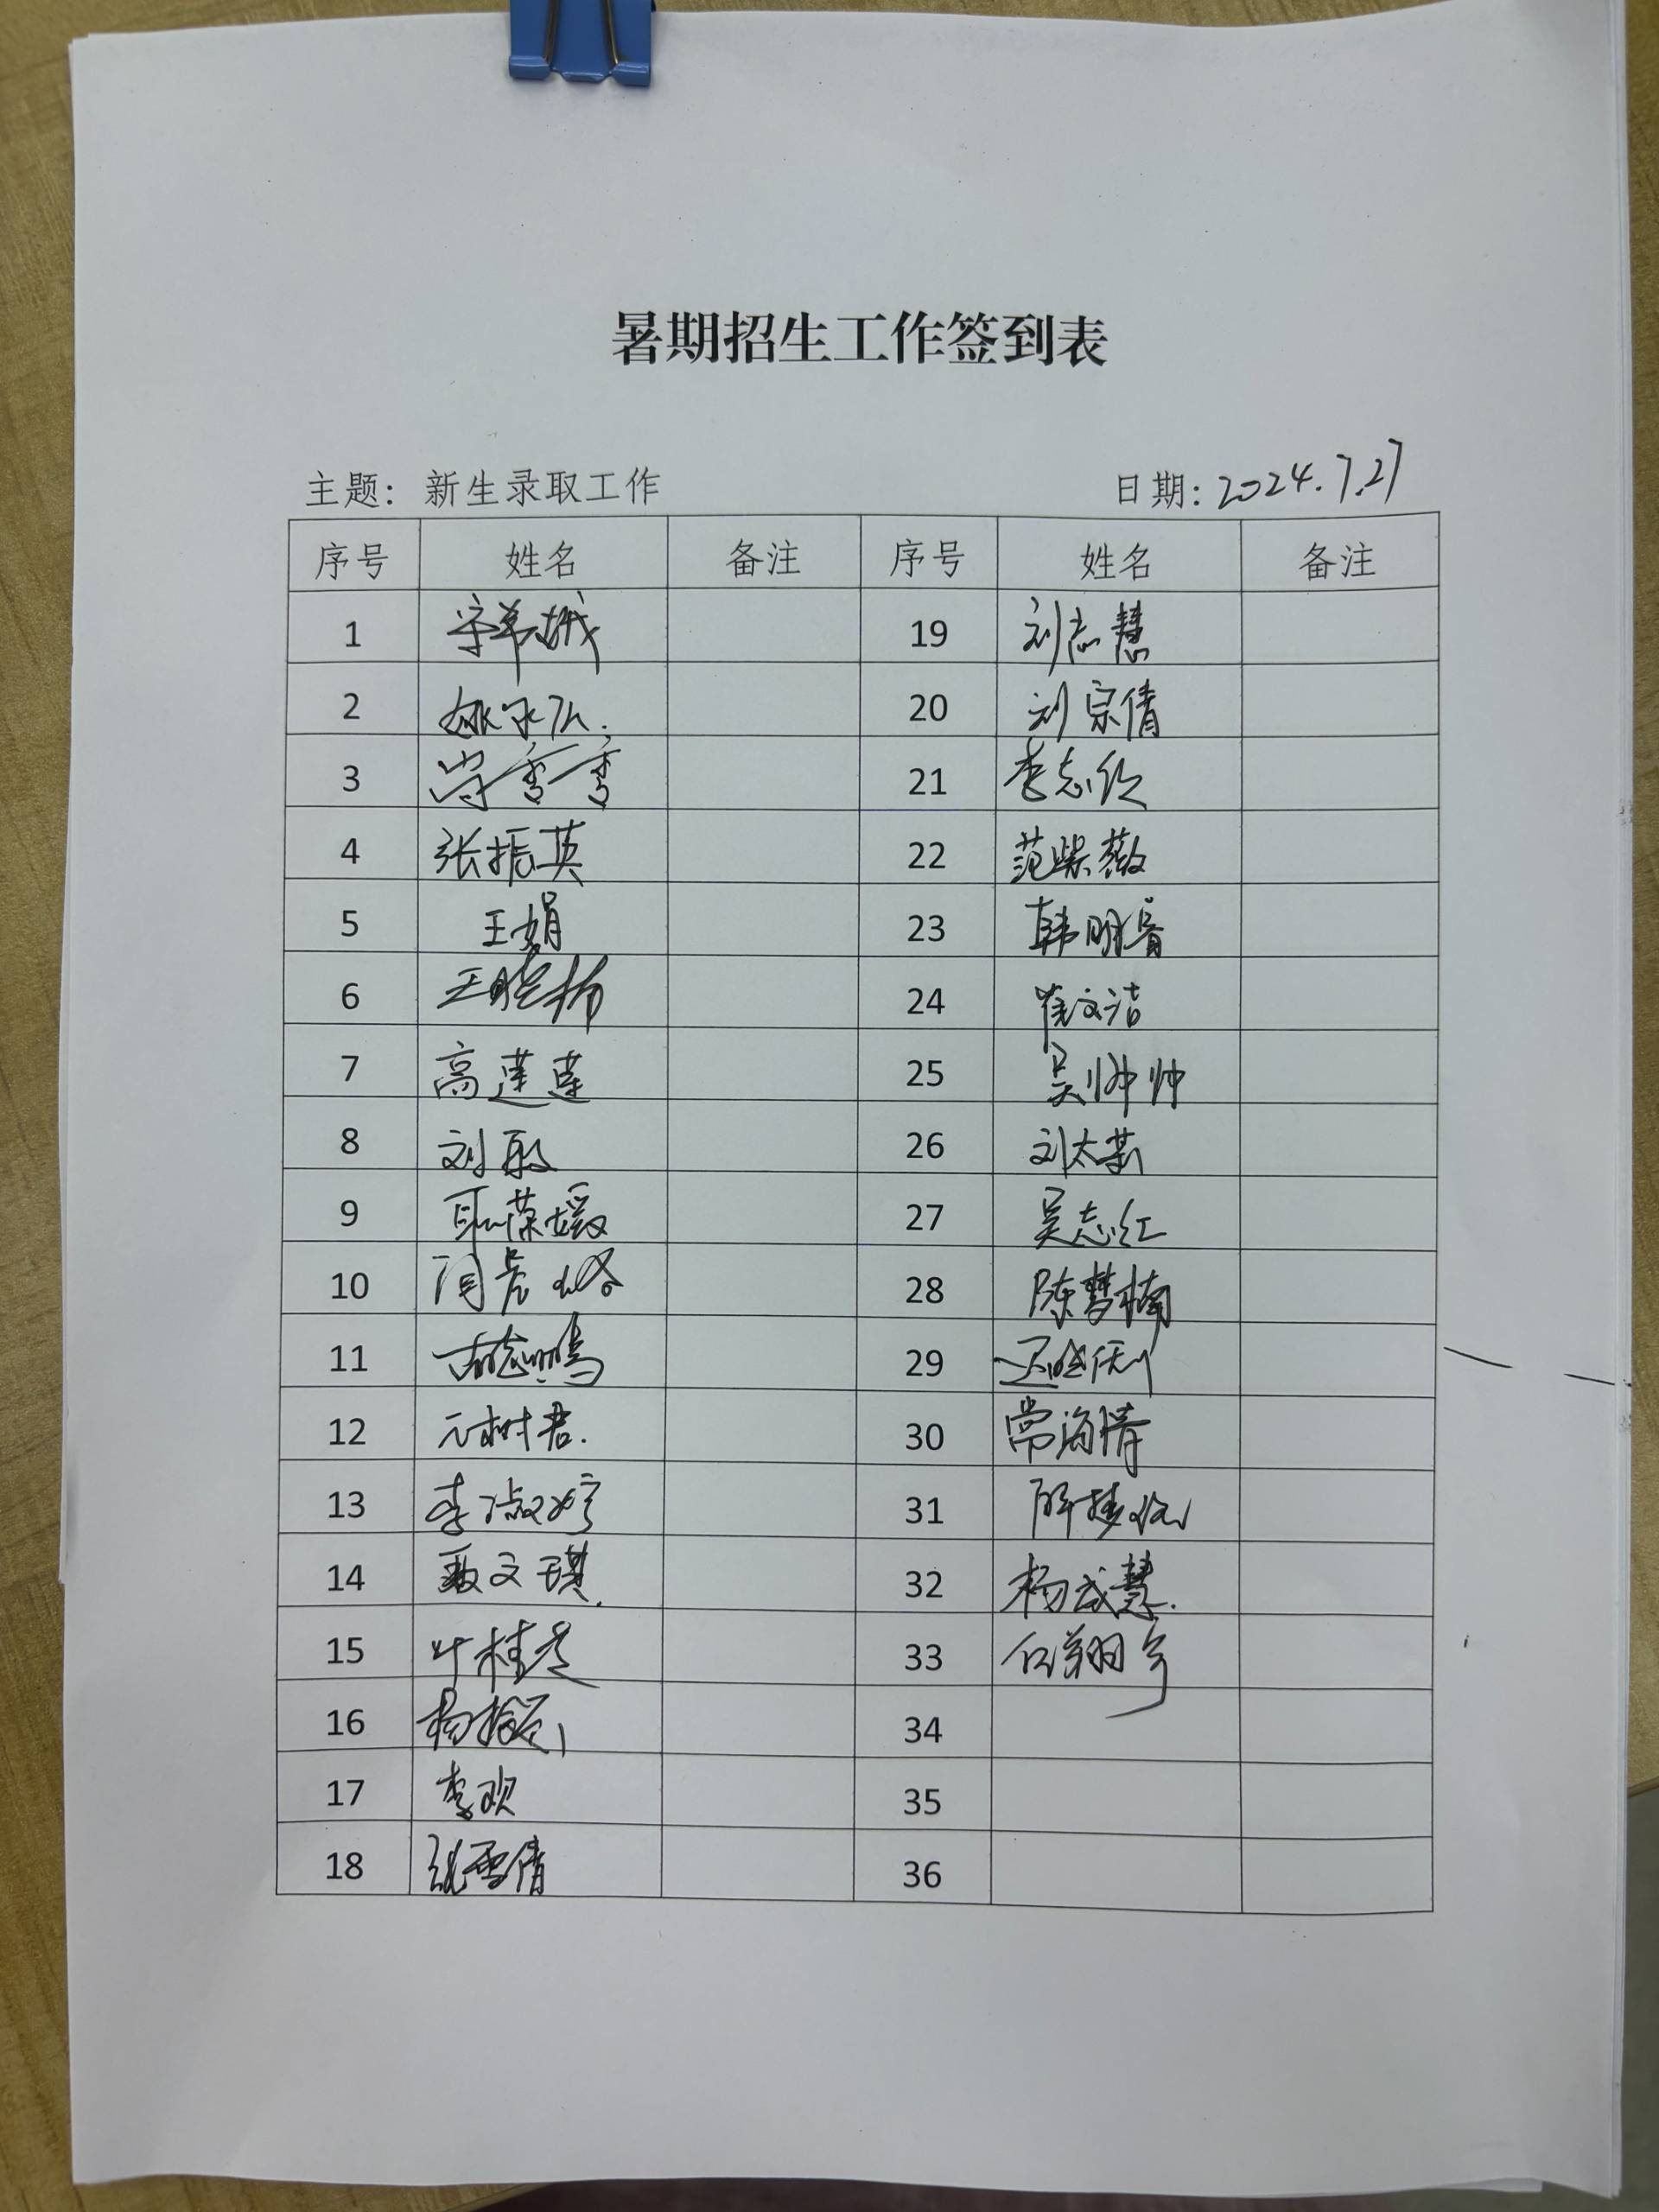 暑期招生工作签到表
主题: 新生录取工作 日期: 2024.7.27
序号 姓名 备注 序号 姓名 备注
1 19 刘志慧
2 20 刘宗倩
3 21 李志欣
4 张振英 22 范紫薇
5 王娟 23 韩明睿
6 王晓楠 24 崔文洁
7 高莲莲 25 吴帅帅
8 刘敏 26
9 耿葆媛 27 吴志红
10 闫 28 陈梦楠
11 胡志鹏 29
12 元树君. 30 常海倩
13 李淑婷 31
14 聂文琪. 32 杨成慧.
15 叶桂芝 33 石翔宇
16 杨 34
17 李欢 35
18 张雪倩 36